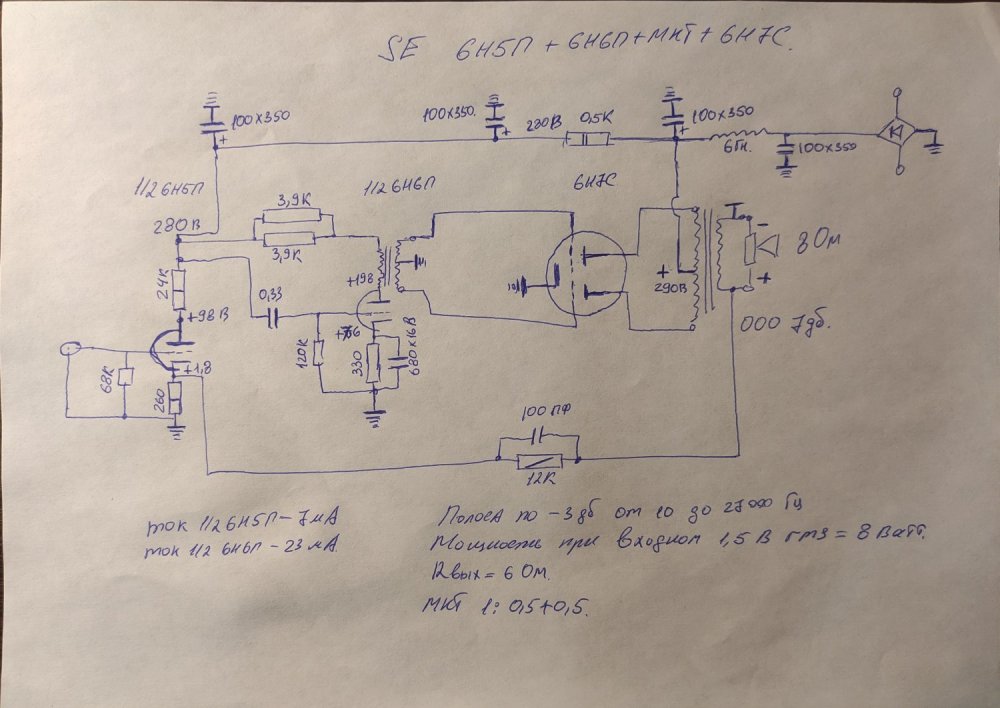 SE 6Н5П + 6Н6П + МКТ + 6Н7С.
100х350
100х350.
280В
0,5К
100х350
6Гн.
100х350
1/2 6Н5П
1/2 6Н6П
6Н7С
3,9К
280В
3,9К
24К
+98 В
0,33
+198
+290В
- 8 Ом
+
000 7дб.
68К
+1,8
260
120К
330
680х16В
100 пФ
12К
ток 1/2 6Н5П – 7мА
ток 1/2 6Н6П – 23 мА.
Полоса по –3дб от 10 до 27000 Гц
Мощность при входном 1,5 В = 8 Ватт.
Rвых = 6 Ом.
МКТ 1: 0,5+0,5.